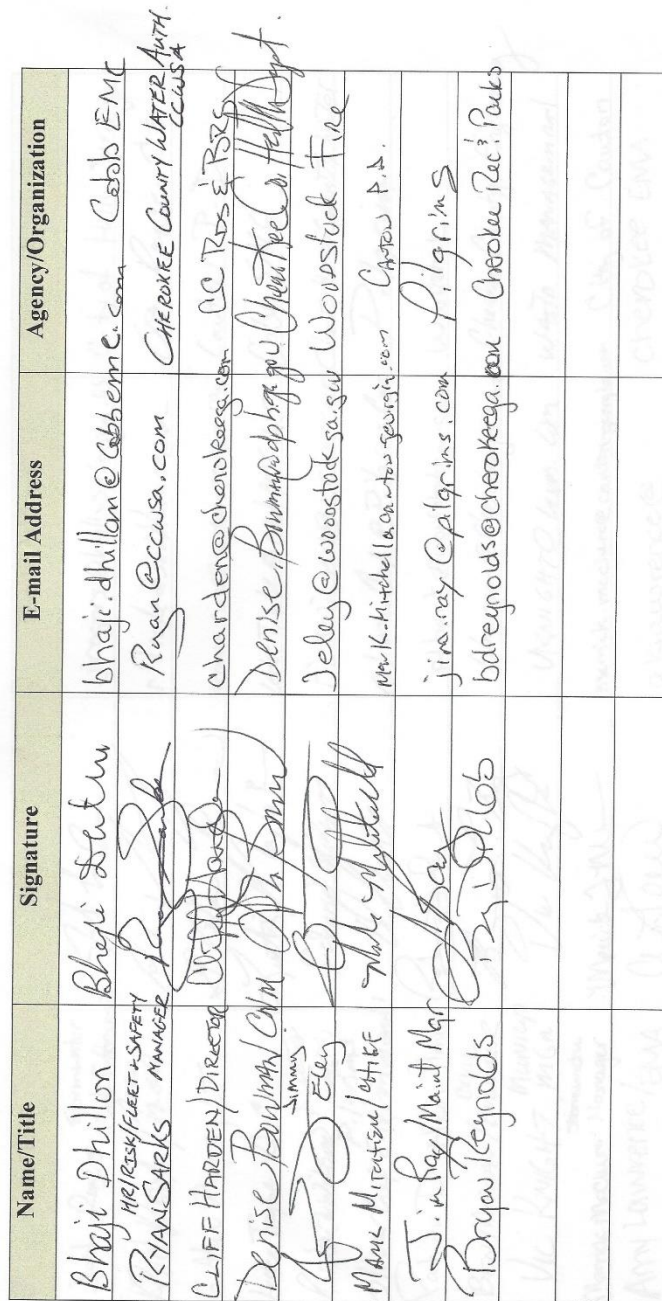 Name/Title Signature E-mail Address Agency/Organization
Bhaji Dhillon bhaji.dhillon@cobbemc.com Cobb EMC
HR/RISK/FLEET & SAFETY
RYAN SARKS MANAGER Ryan@ccwsa.com CHEROKEE COUNTY WATER AUTH.
CCWSA
CLIFF HARDEN/DIRECTOR Cliff Harden charden@cherokeega.com CC RDS & BRG
Denise Bowman/CNM Denise.Bowman@dph.ga.gov Cherokee Co. Health Dept.
Jimmy
Eley Jeley@woodstockga.gov Woodstock Fire
MARK MITCHELL/ Mark Mitchell Mark.Mitchell@cantongeorgia.com CANTON P.D.
Jim Ray/Maint Mgr jim.ray@pilgrims.com Pilgrims
Bryan Reynolds bdreynolds@cherokeega.com Cherokee Rec & Parks